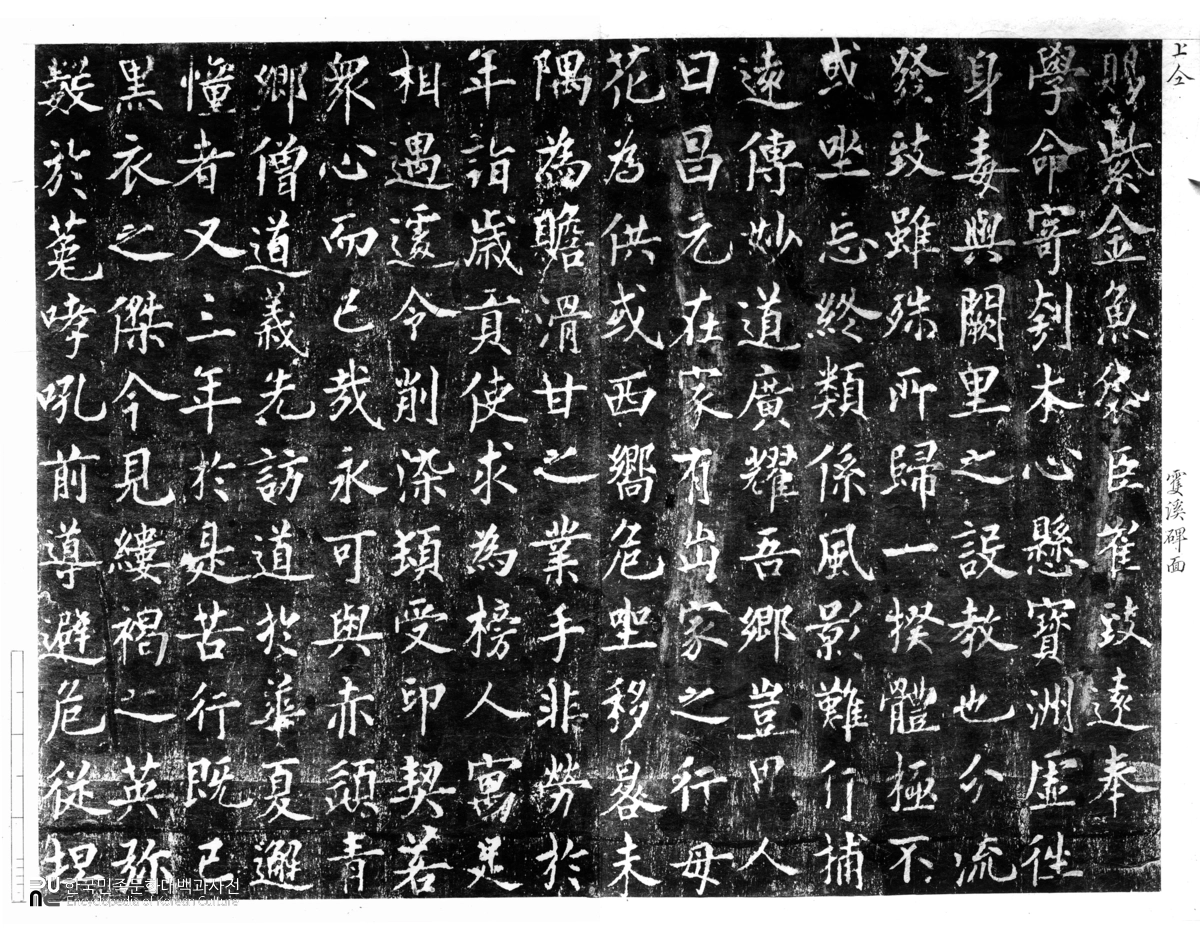 上仝
雙溪碑面
賜紫金魚袋臣崔致遠奉
學命寄刹本心懸寶洲虛往
身毒與闕里之設教也分流
發致雖殊所歸一揆體極不
或坐忘終類係風影難行捕
遠傳妙道廣耀吾鄉豈人
曰昌元在家有出家之行母
花為供或西嚮危坐移晷未
隅為贍滑甘之業手非勞於
年詣歲貢使求為榜人寓足
相遇遽令削染頓受印契若
衆心而已哉永可與赤頭青
鄉僧道義先訪道於華夏邂
憧者又三年於是苦行既已
黑衣之傑今見縷褐之英弥
數於菟哮吼前導避危從坦
한국민족문화대백과사전
Encyclopedia of Korean Culture